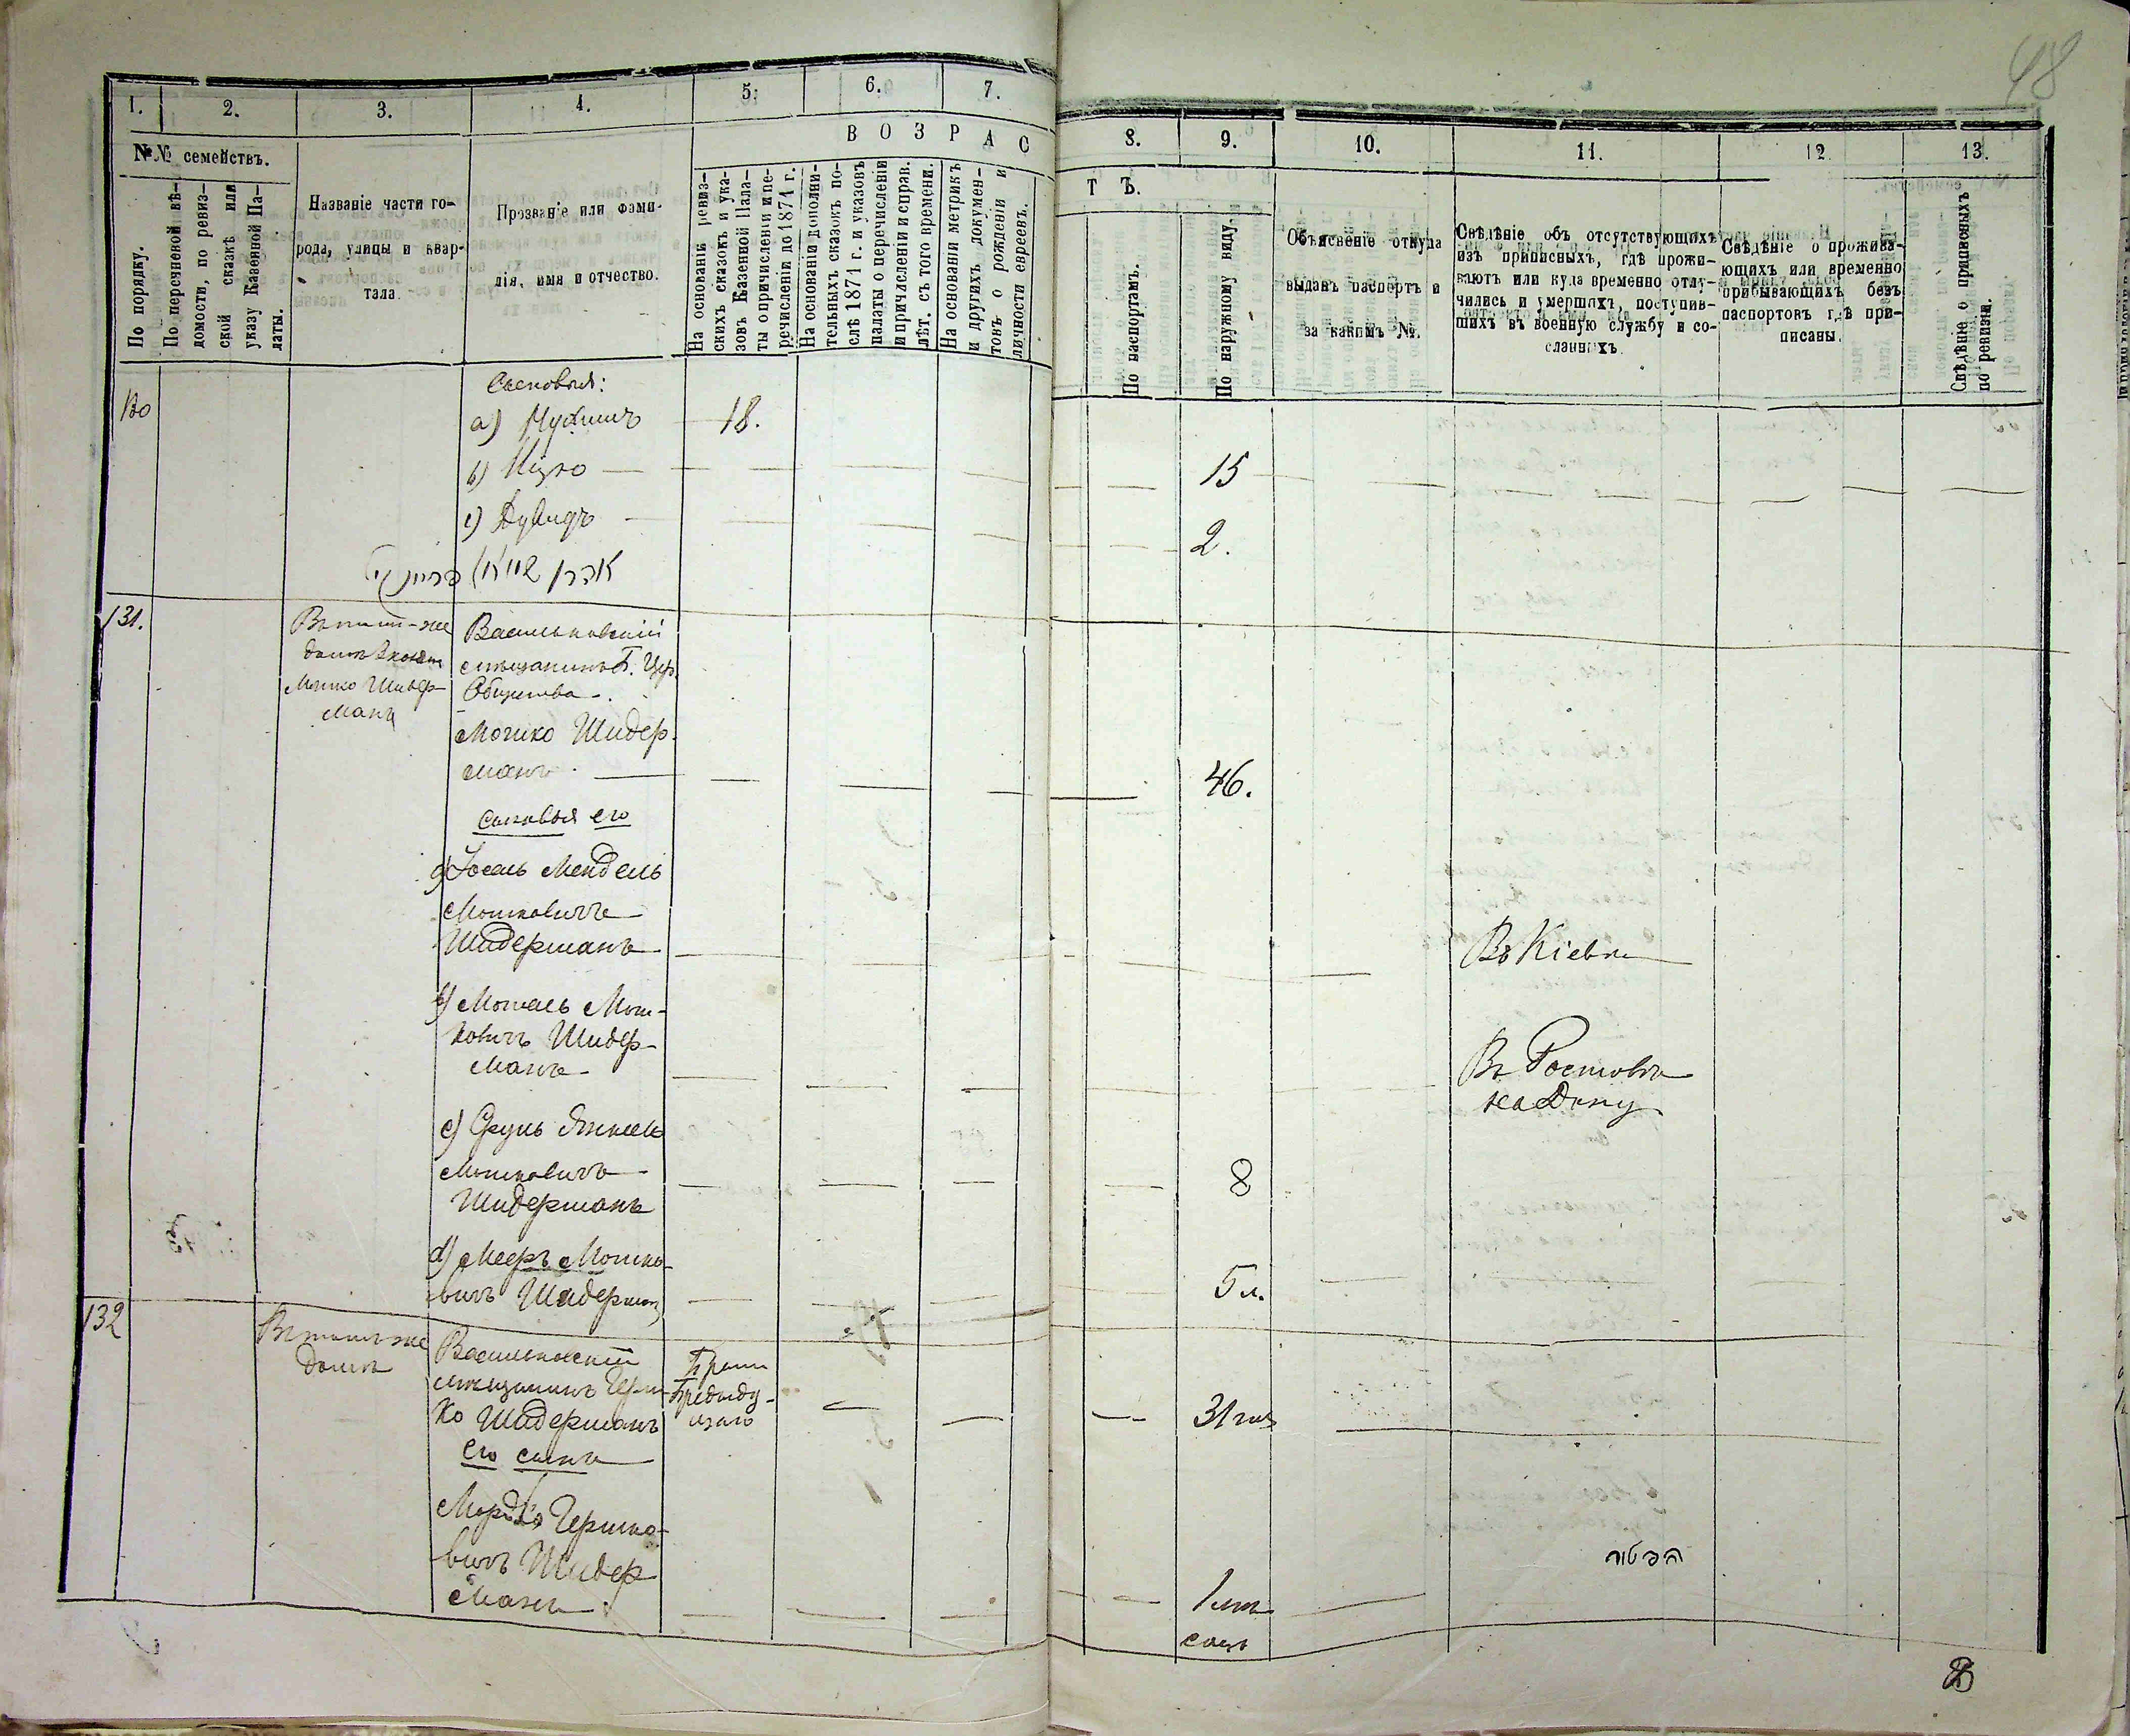 48
1.
2.
3.
4.
5.
6.
7.
8.
9.
10.
11.
12.
13.
№№ семействъ.
По порядку.
По перечневой вѣ-
домости, по ревиз-
ской сказкѣ или
указу Казенной Па-
латы.
Названіе части го-
рода, улицы и квар-
тала.
Прозваніе или фами-
лія, имя и отчество.
ВОЗРАС
ТЪ.
На основаніи ревиз-
скихъ сказокъ и ука-
зовъ Казенной Пала-
ты о причисленіи и пе-
речисленіи до 1874 г.
На основаніи дополни-
тельныхъ сказокъ по-
слѣ 1874 г. и указовъ
палаты о перечисленіи
и причисленіи и справ.
лѣт. съ того времени.
На основаніи метрикъ
и другихъ докумен-
товъ о рожденіи и
личности евреевъ.
По паспортамъ.
По наружному виду.
Объясненіе откуда
выданъ паспортъ и
за какимъ №.
Свѣдѣніе объ отсутствующихъ
изъ приписныхъ, гдѣ прожи-
ваютъ или куда временно отлу-
чились и умершихъ, поступив-
шихъ въ военную службу и со-
сланныхъ.
Свѣдѣніе о прожива-
ющихъ или временно
прибывающихъ безъ
паспортовъ гдѣ при-
писаны.
Свѣдѣніе о приписныхъ
по ревизіи.
Сыновья:
а) 18.
b) Ицко 15
с) Дувидъ 2.
131.
Васильковскій
мѣщанинъ Б. Цер.
Общества.
Мошко Шидер-
манъ 46.
сыновья его
а) Іосель Мендель
Мошковичъ
Шидерманъ Въ Кіевѣ
b) Мош-
ковичъ Шидер-
манъ Въ Ростовѣ
на Дону
с) Сруль Янкель
Мошковичъ
Шидерманъ 8
d) Мееръ Мошко-
вичъ Шидерман 5 л.
132
Въ томъ же
домѣ
Васильковскій
мѣщанинъ Герш-
ко Шидерманъ
Братъ
Предыду-
щаго
31
его сынъ
Мордко Гершко-
вичъ Шидер
манъ
1 мѣ
сяцъ